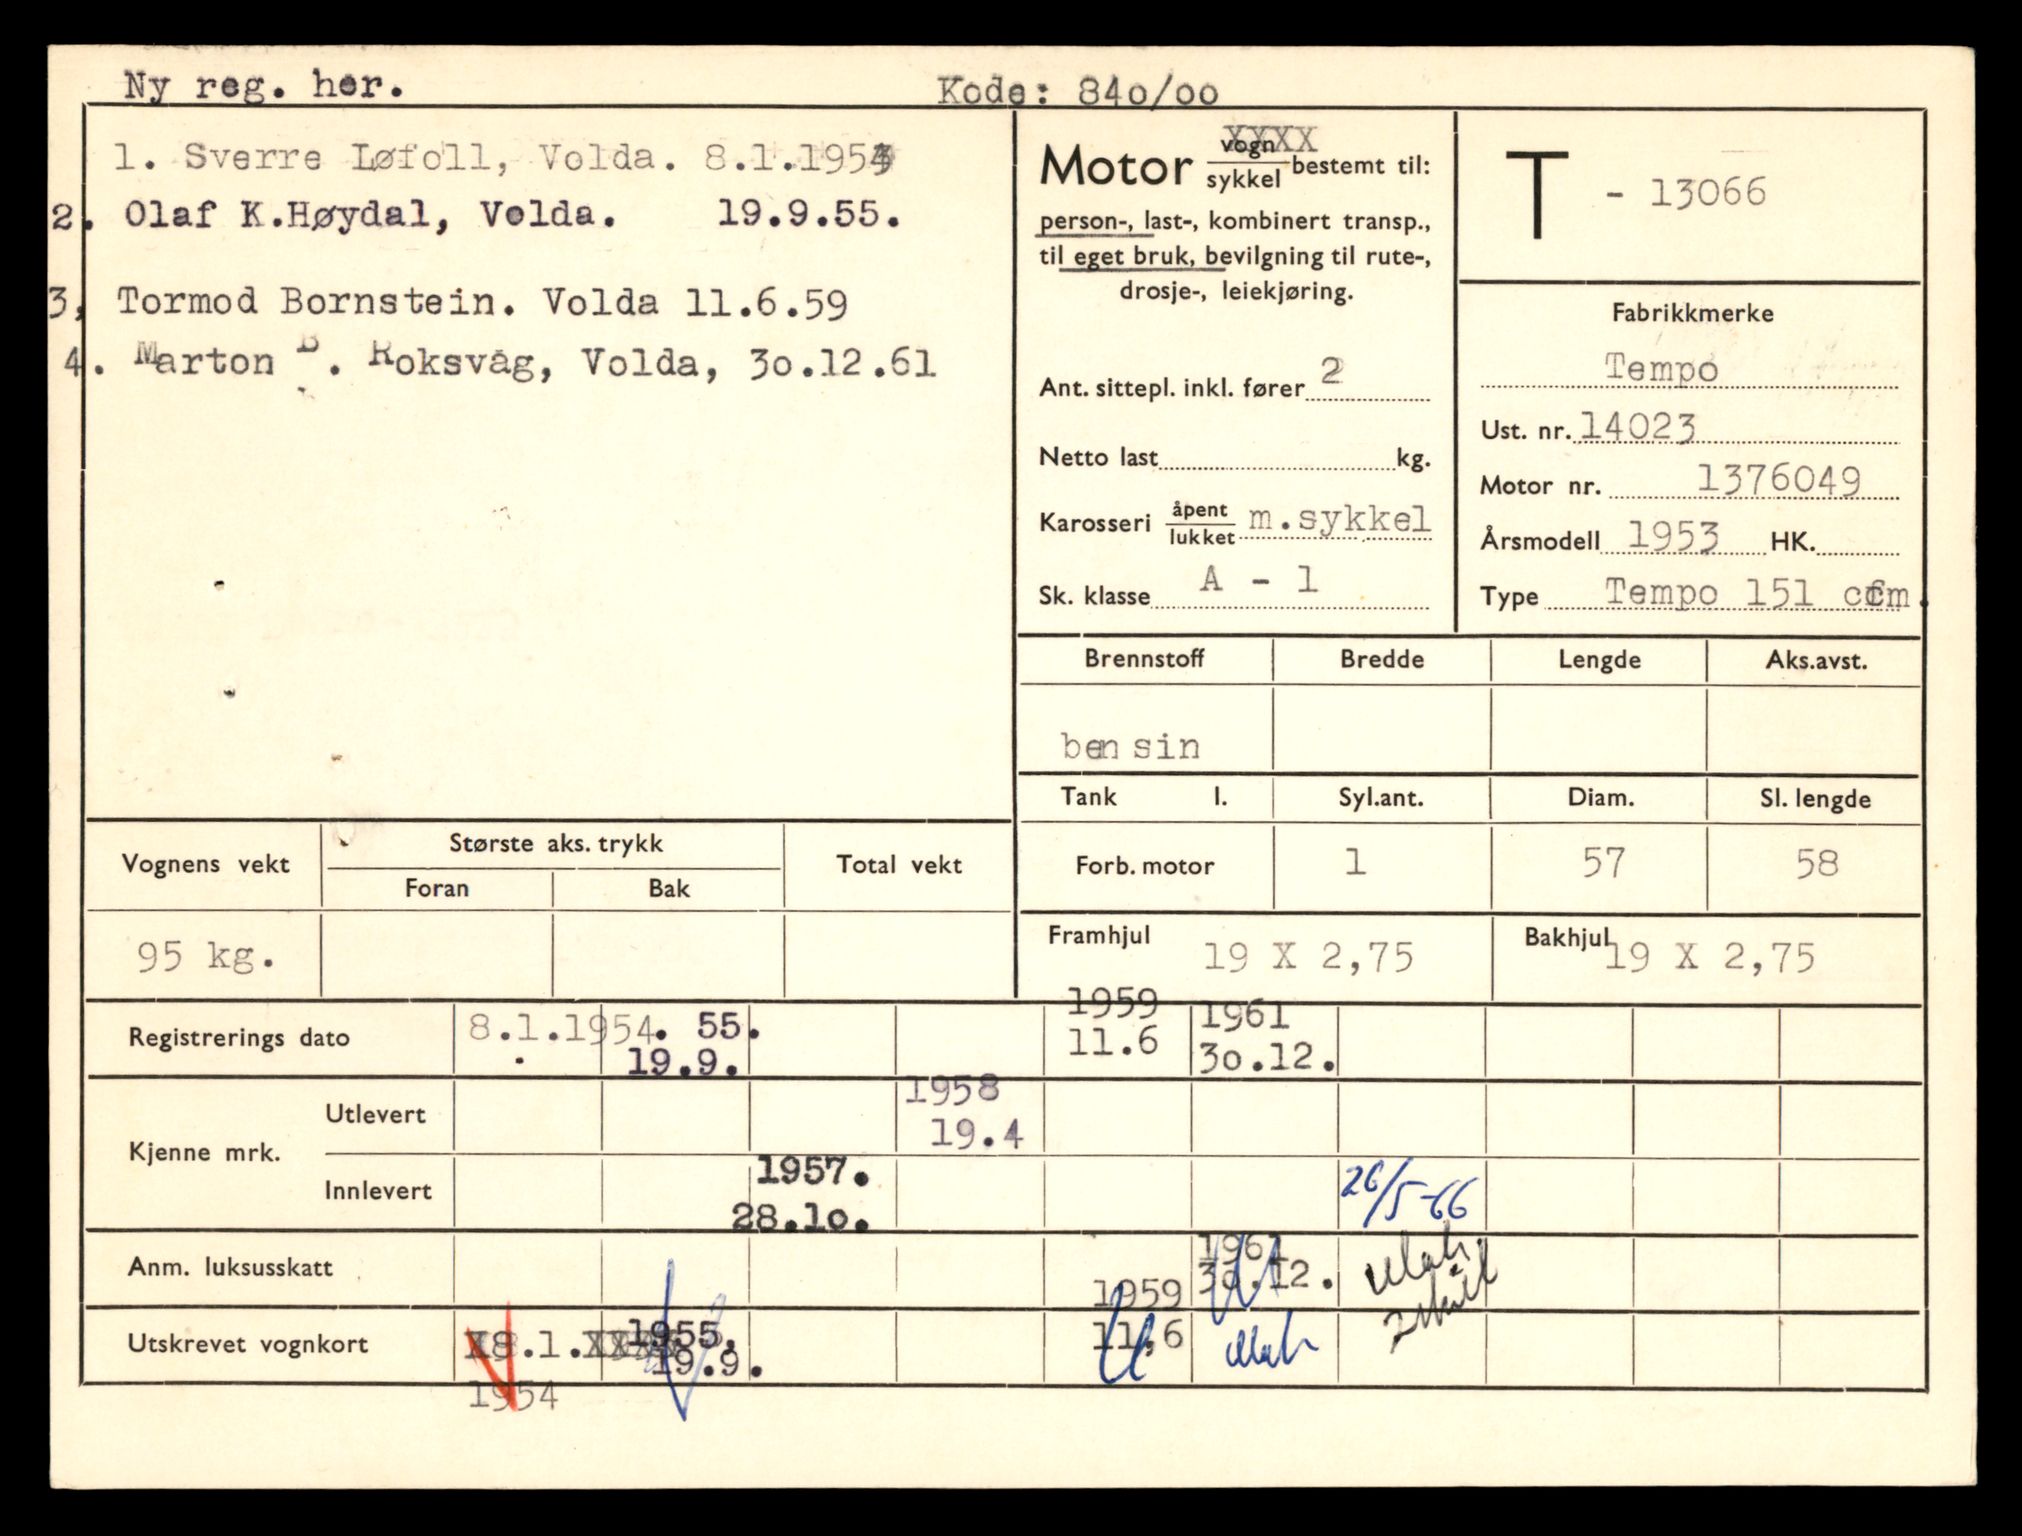 Ny reg. her.
Kode: 84o/oo
1. Sverre Løfoll, Volda. 8.1.1954
2. Olaf K.Høydal, Volda. 19.9.55.
3, Tormod Bornstein. Volda 11.6.59
4. Marton B. Roksvåg, Volda, 3o.12.61
XXXX
Motor vogn/sykkel bestemt til:
person-, last-, kombinert transp.,
til eget bruk, bevilgning til rute-,
drosje-, leiekjøring.
Ant. sittepl. inkl. fører 2
Netto last kg.
Karosseri åpent/lukket m.sykkel
Sk. klasse A - 1
T - 13066
Fabrikkmerke
Tempo
Ust. nr. 14023
Motor nr. 1376049
Årsmodell 1953 HK.
Type Tempo 151 ccm.
Brennstoff Bredde Lengde Aks.avst.
bensin
Tank l. Syl.ant. Diam. Sl. lengde
Forb. motor 1 57 58
Framhjul 19 X 2,75 Bakhjul 19 X 2,75
Vognens vekt Største aks. trykk Total vekt
Foran Bak
95 kg.
Registrerings dato 8.1.1954. 55. 19.9. 1959 11.6 1961 3o.12.
Kjenne mrk.
Utlevert 1958 19.4
Innlevert 1957. 28.1o. 26/5-66
Anm. luksusskatt 1961 3o.12.
Utskrevet vognkort 8.1. 1955, 19.9. 1959 11.6
1954